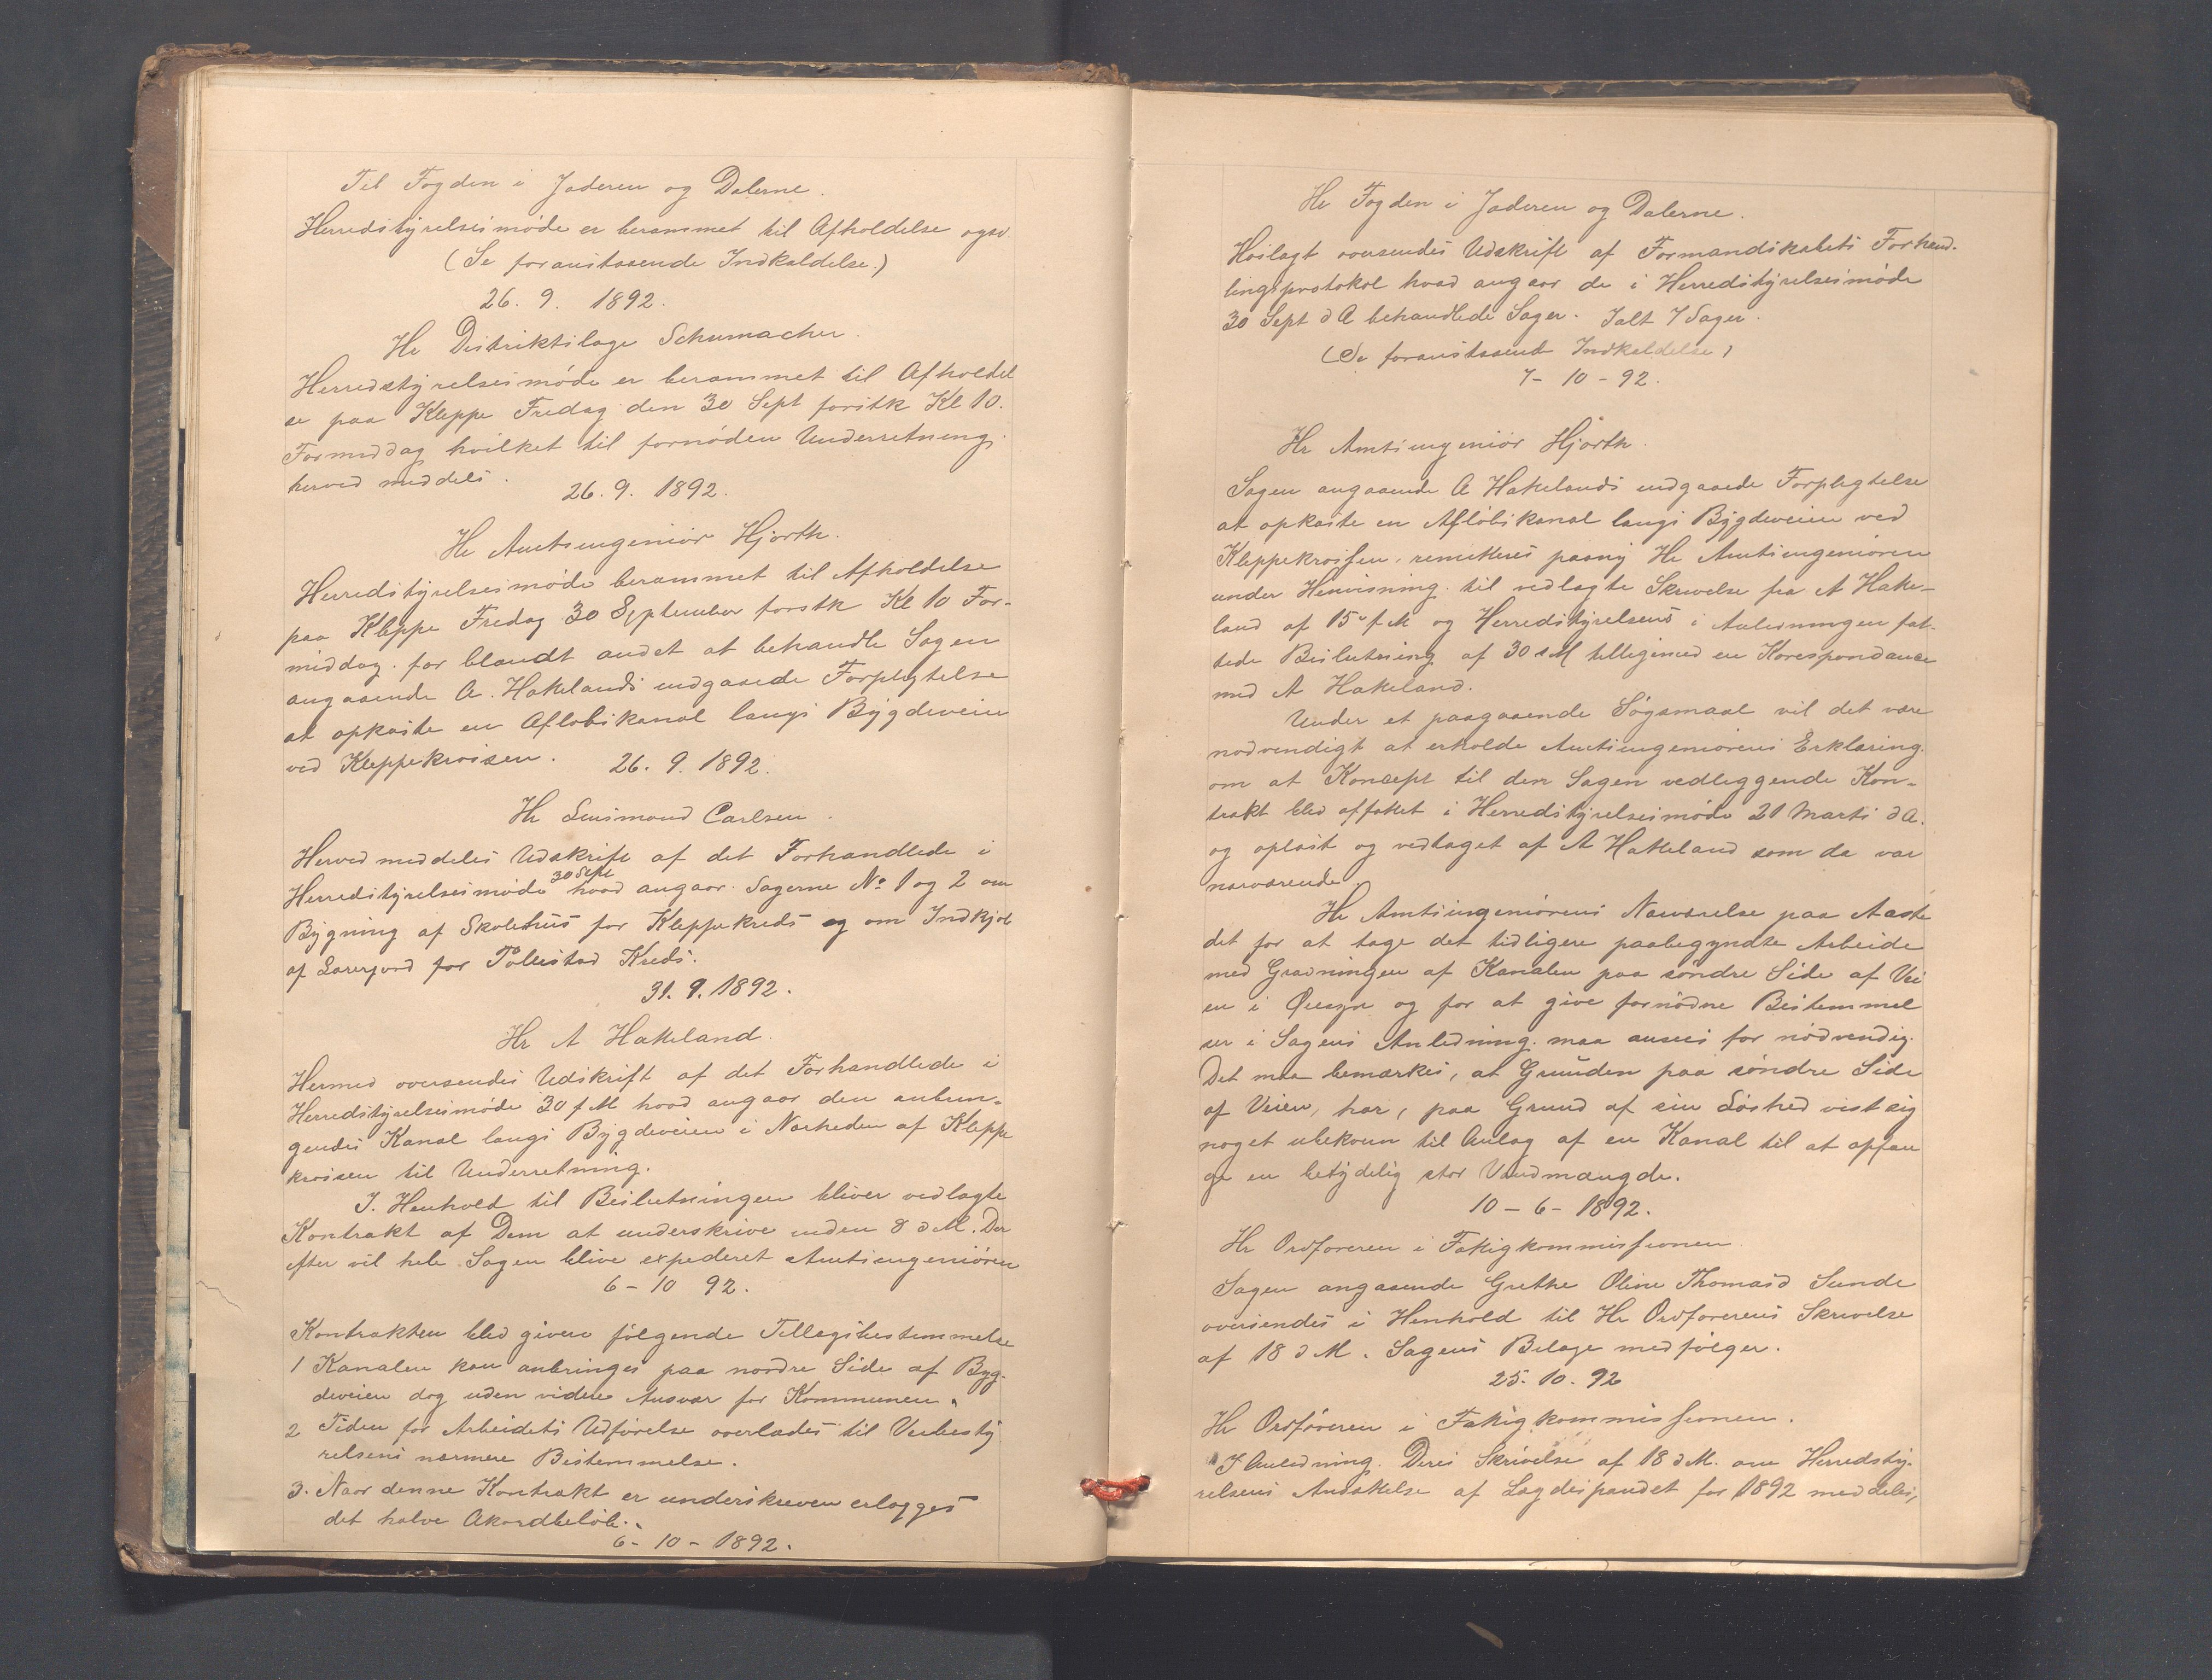 Til Fogden i Jæderen og Dalerne.
Herredstyrelsesmøde er berammet til Afholdelse ogsv.
(Se foranstaaende Indkaldelse.)
26. 9. 1892.
Hr Distriktslæge Schumacher.
Herredstyrelsesmøde er berammet til Afholdel
se paa Kleppe Fredag den 30 Sept førstk Kl 10.
Formiddag hvilket til fornøden Underretning
herved meddeles.
26. 9. 1892.
Hr Amtsingeniør Hjorth.
Herredstyrelsesmøde berammet til Afholdelse
paa Kleppe Fredag 30 September førstk Kl 10 For-
middag. for blandt andet at behandle Sagen
angaaende A. Hakelands indgaaede Forpligtelse
at opkaste en Afløbskanal langs Bygdeveien
ved Kleppekrossen.
26. 9. 1892.
Hr Lensmand Carlsen.
Herved meddeles Udskrift af det Forhandlede i
Herredstyrelsesmøde 30 Sept hvad angaar Sagerne No 1 og 2 om
Bygning af Skolehus for Kleppekreds og om Indkjøb
af Lærerjord for Tollestad Kreds.
31. 9. 1892.
Hr A Hakeland.
Hermed oversendes Udskrift af det Forhandlede i
Herredstyrelsesmøde 30 f M hvad angaar den anbrin-
gendes Kanal langs Bygdeveien i Nærheden af Kleppe
krossen til Underretning.
I. Henhold til Beslutningen bliver vedlagte
Kontrakt af Dem at underskrive inden 8 d M. Der
efter vil hele Sagen blive expederet Amtsingeniøren
6 - 10 92.
Kontrakten blev given følgende Tillægsbestemmelse
1 Kanalen kan anbringes paa nordre Side af Byg-
deveien dog uden videre Ansvar for Kommunen.
2 Tiden for Arbeidets Udførelse overlades til Veibesty
relsens nærmere Bestemmelse.
3. Naar denne Kontrakt er underskreven erlægges
det halve Akordbeløb.
6 - 10 - 1892.
Hr Fogden i Jæderen og Dalerne.
Høilagt oversendes Udskrift af Formandskabets Forhand-
lingsprotokol hvad angaar de i Herredstyrelsesmøde
30 Sept d A behandlede Sager. Ialt 7 Sager.
(Se foranstaaende Indkaldelse)
7 - 10 - 92.
Hr Amtsingeniør Hjorth.
Sagen angaaende A Hakelands indgaaede Forpligtelse
at opkaste en Afløbskanal langs Bygdeveien ved
Kleppekrossen, remitteres paany Hr Amtsingeniøren
under Henvisning til vedlagte Skrivelse fra A Hake-
land af 15 f M og Herredstyrelsens i Anledningen fat-
tede Beslutning af 30 s M tilligemed en Korespondance
med A Hakeland.
Under et paagaaende Søgsmaal vil det være
nødvendigt at erholde Amtsingeniørens Erklæring
om at Koncept til den Sagen vedliggende Kon-
trakt blev affattet i Herredstyrelsesmøde 21 Marts d A.
og oplæst og vedtaget af A Hakeland som da var
nærværende.
Hr Amtsingeniørens Nærværelse paa Aaste
det for at tage det tidligere paabegyndte Arbeide
med Gravningen af Kanalen paa søndre Side af Vei
en i Øiesyn og for at give fornødne Bestemmel
ser i Sagens Anledning. maa ansees for nødvendig.
Det maa bemærkes, at Grunden paa søndre Side
af Veien, har, paa Grund af sin Løshed vist sig
noget ubekvem til Anlæg af en Kanal til at opfan
ge en betydelig stor Vandmængde.
10 - 6 - 1892.
Hr Ordføreren i Fatigkommissionen
Sagen angaaende Grethe Oline Thomasd Sunde
oversendes i Henhold til Hr Ordførerens Skrivelse
af 18 d M. Sagens Bilage medfølger.
25. 10. 92
Hr Ordføreren i Fatigkommissionen.
I Anledning Deres Skrivelse af 18 d M. om Herredsty-
relsens Andskelse af Lægdespandet for 1892 meddeles,